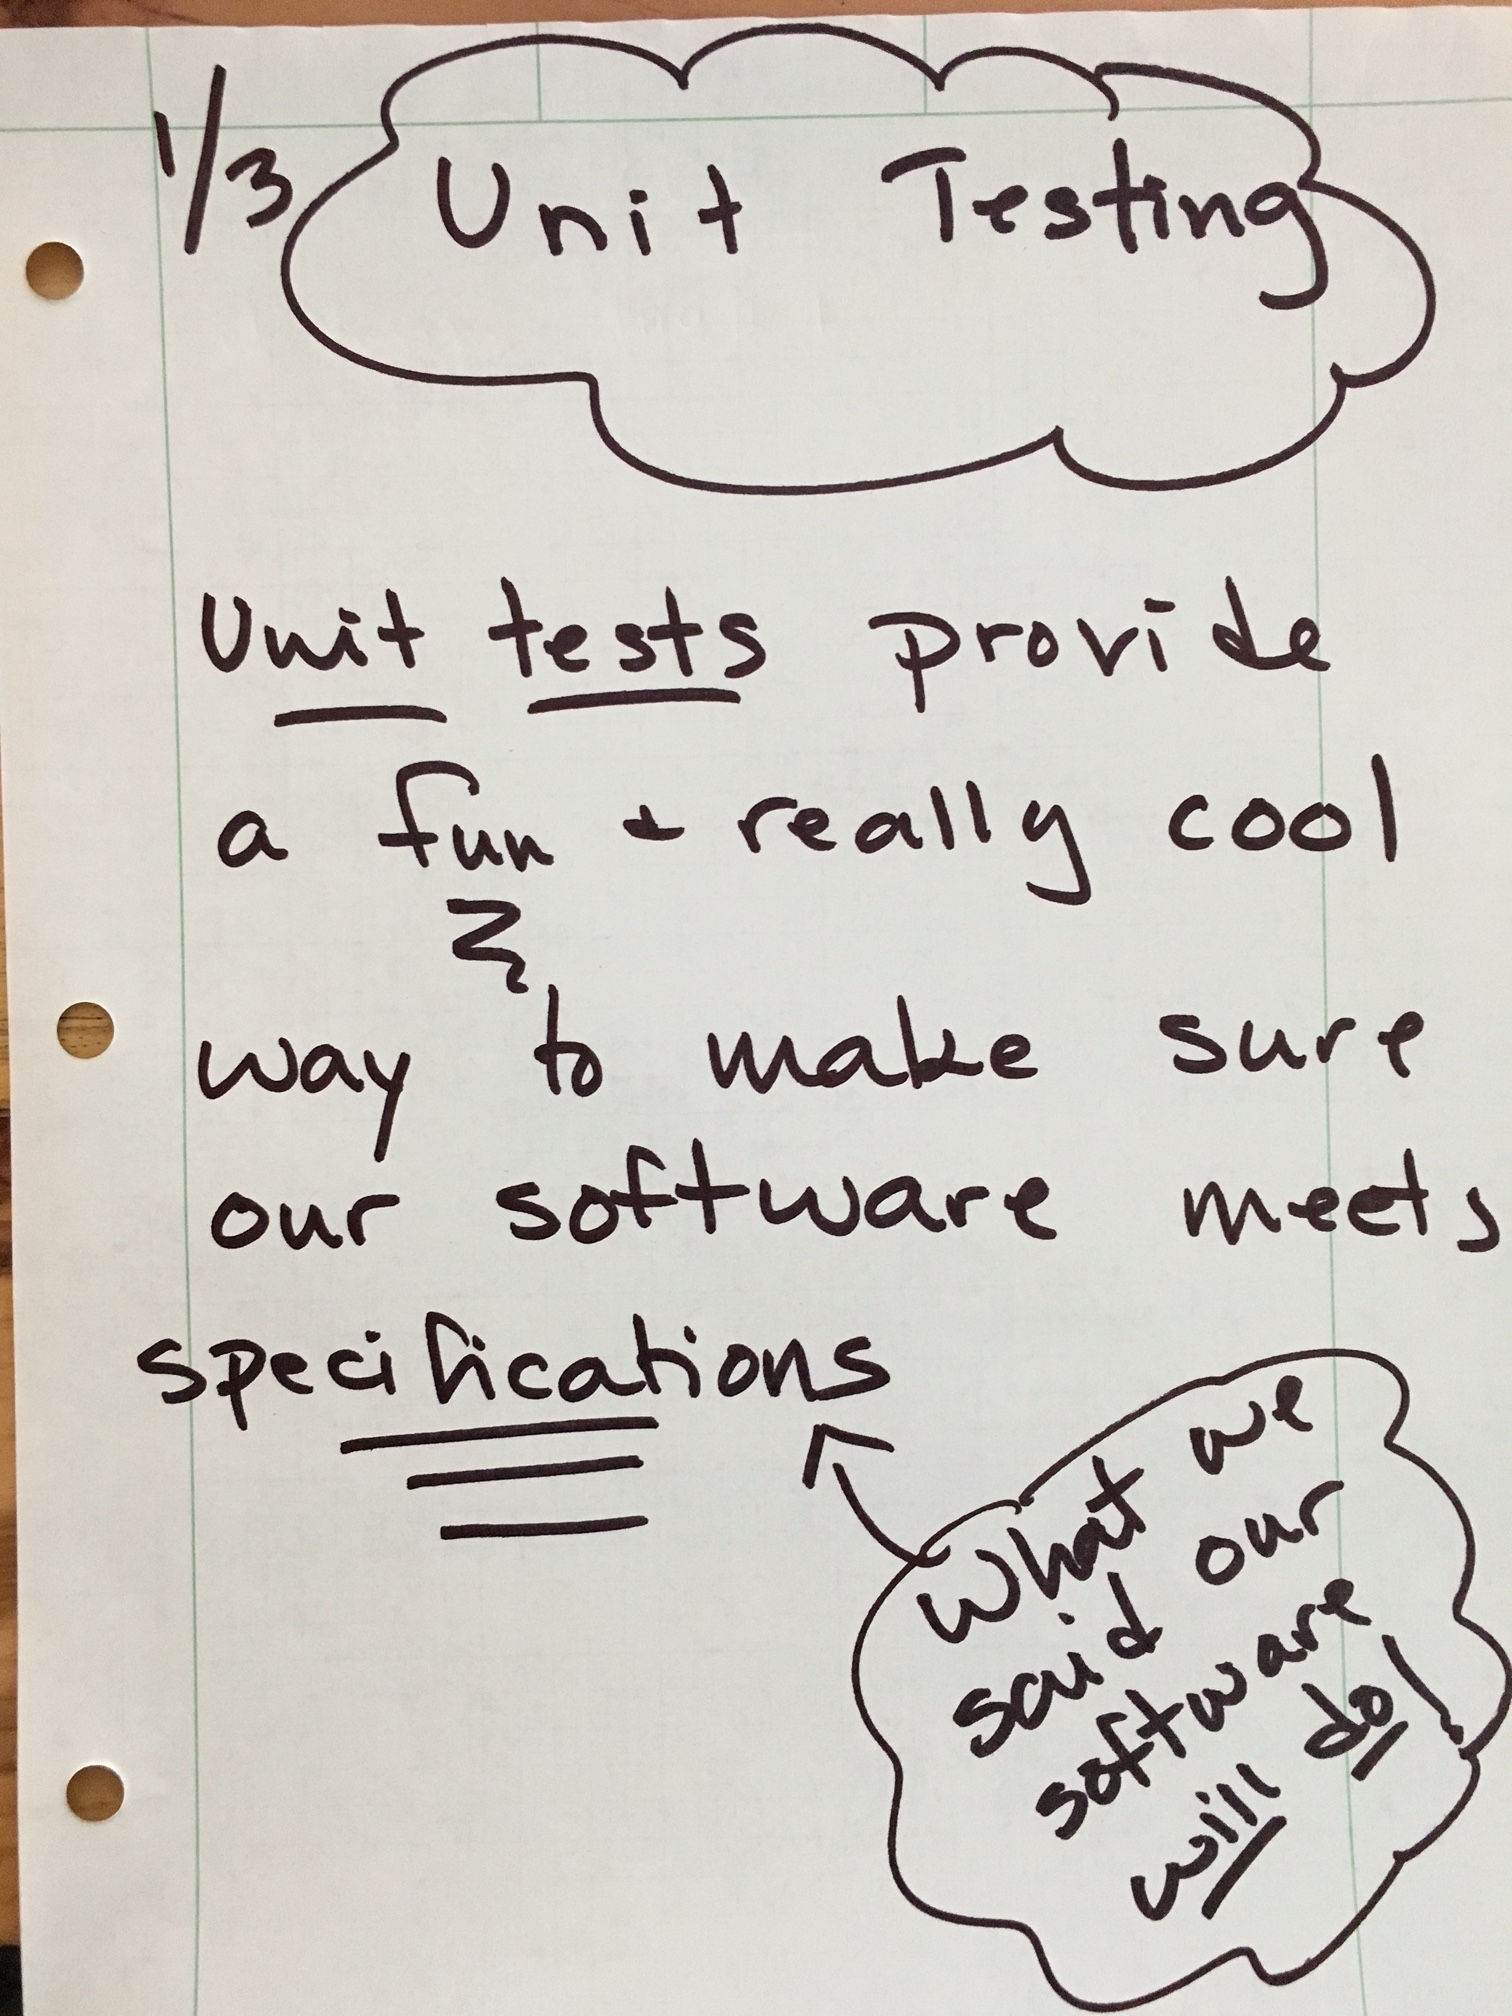 1/3
Unit Testing
Unit tests provide
a fun & really cool
way to make sure
our software meets
specifications
What we
said our
software
will do!